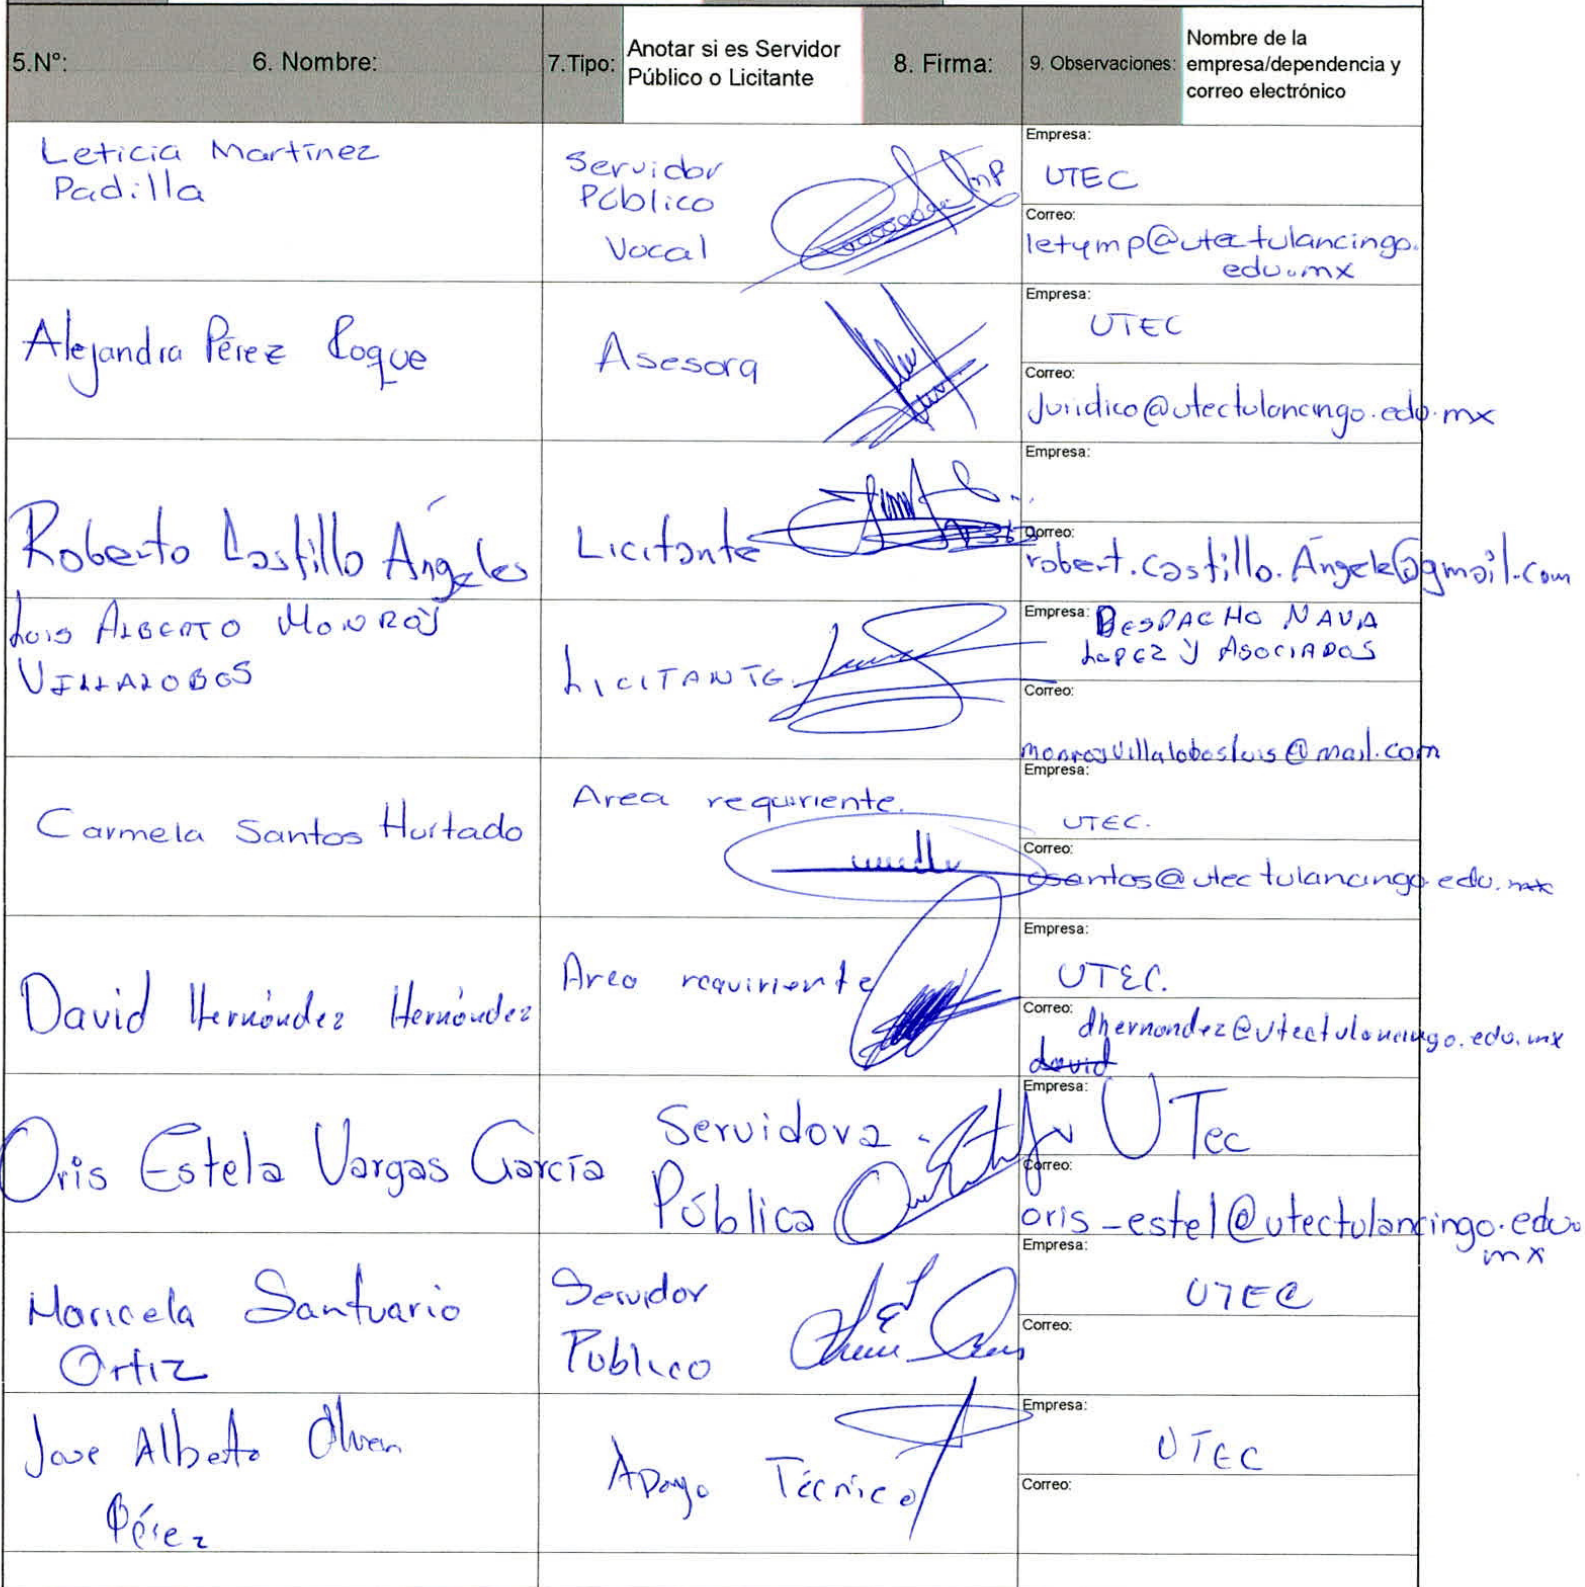 5.N°: 6. Nombre: 7.Tipo: Anotar si es Servidor Público o Licitante 8. Firma: 9. Observaciones: Nombre de la empresa/dependencia y correo electrónico
Leticia Martínez
Padilla
Servidor
Público
Vocal
Empresa:
UTEC
Correo:
letymp@utectulancingo.
edu.mx
Alejandra Pérez Roque
Asesora
Empresa:
UTEC
Correo:
Juridico@utectulancingo.edu.mx
Roberto Castillo Ángeles
Licitante
Empresa:
Correo:
robert.castillo.Ángeles@gmail.com
Luis ALBERTO MONROY
VILLALOBOS
LICITANTE
Empresa: DESPACHO NAVA
LOPEZ Y ASOCIADOS
Correo:
monroyvillalobosluis@mail.com
Carmela Santos Hurtado
Area requiriente.
Empresa:
UTEC.
Correo:
csantos@utectulancingo.edu.mx
David Hernández Hernández
Area requiriente
Empresa:
UTEC.
Correo: dhernandez@utectulancingo.edu.mx
david
Oris Estela Vargas García
Servidora
Pública
Empresa:
UTec
Correo:
oris_estel@utectulancingo.edu.
mx
Maricela Santuario
Ortiz
Servidor
Publico
Empresa:
UTEC
Correo:
Jose Alberto
Pérez
Apoyo Técnico
Empresa:
UTEC
Correo: